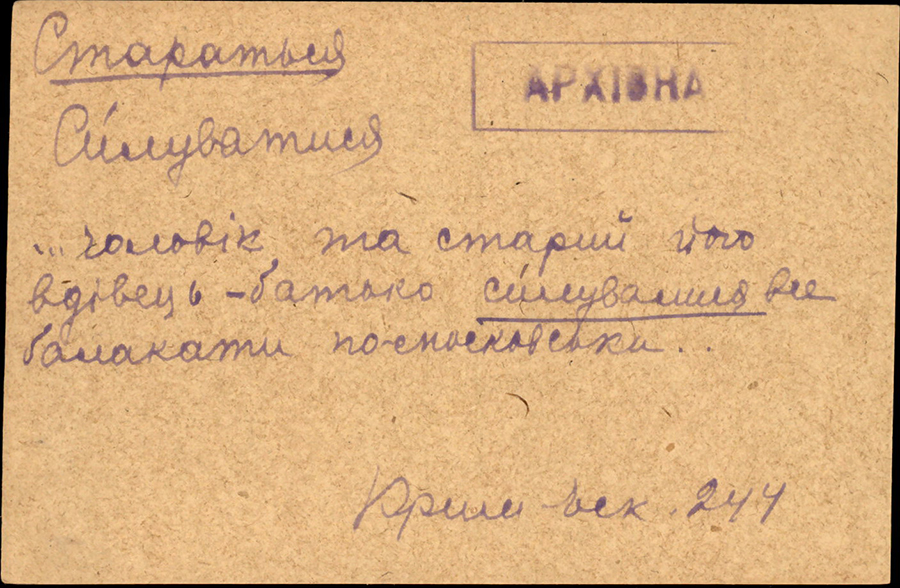 Стараться
АРХІВНА
Си́луватися
... чоловік та старий його
вдівець-батько си́лувалися все
балакати по-московськи..
Крим-ськ. 244